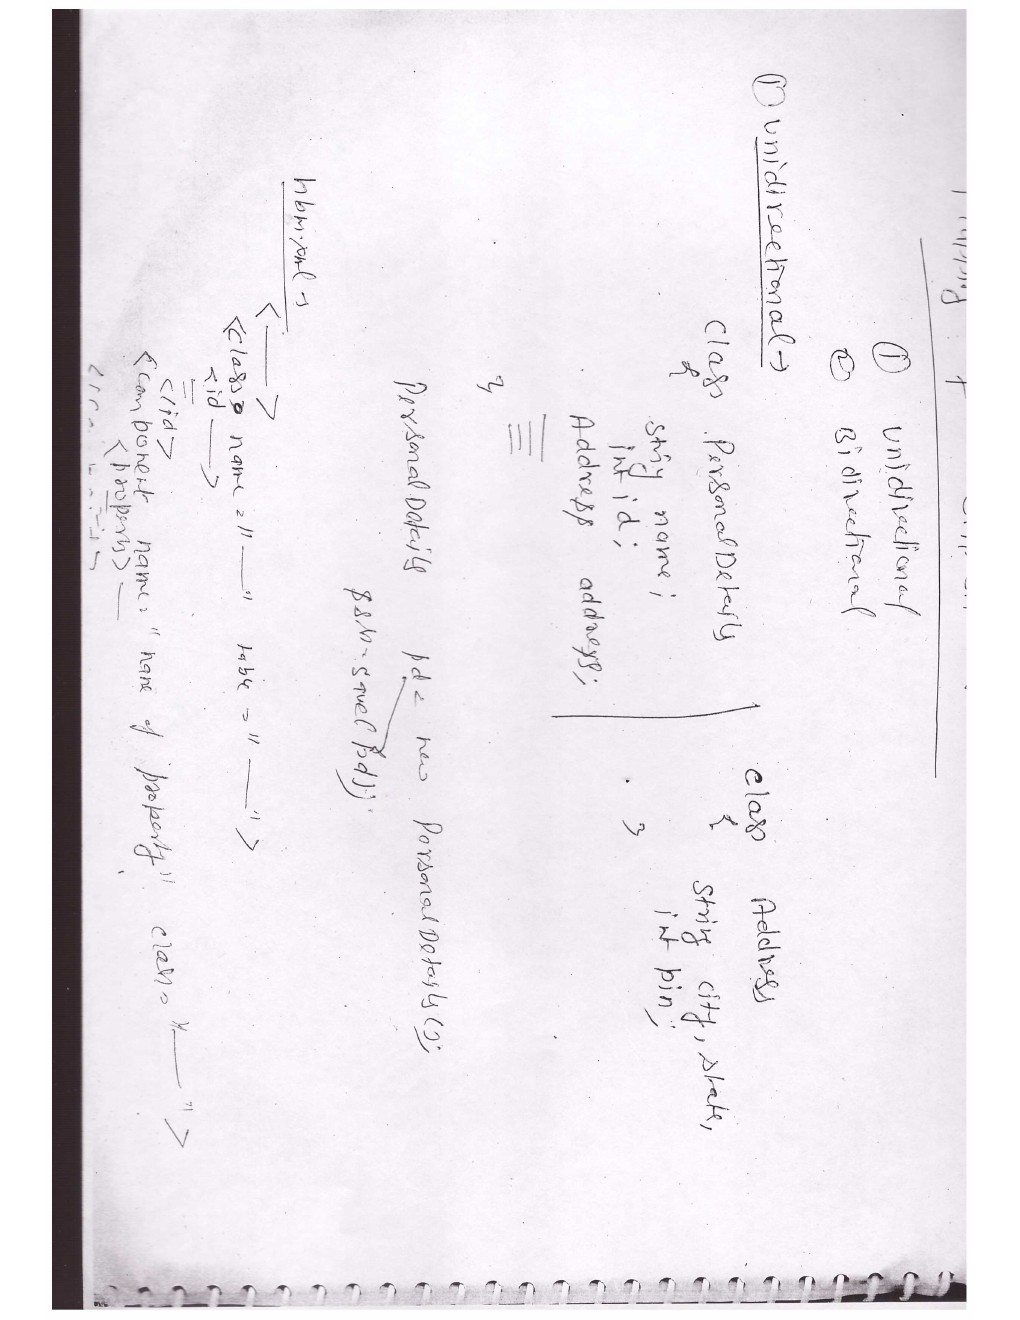 Mapping of
① Unidirectional
② Bidirectional
① Unidirectional →
class PersonalDetails
{
String name;
int id;
Address address;
}
class Address
{
String city, state,
int pin;
}
PersonalDetails pd = new PersonalDetails();
ssn.save(pd);
hbm.xml →
< — >
<class name="—" table="—">
<id —>
</id>
<component name="name of property" class="—">
<property> —
</component>